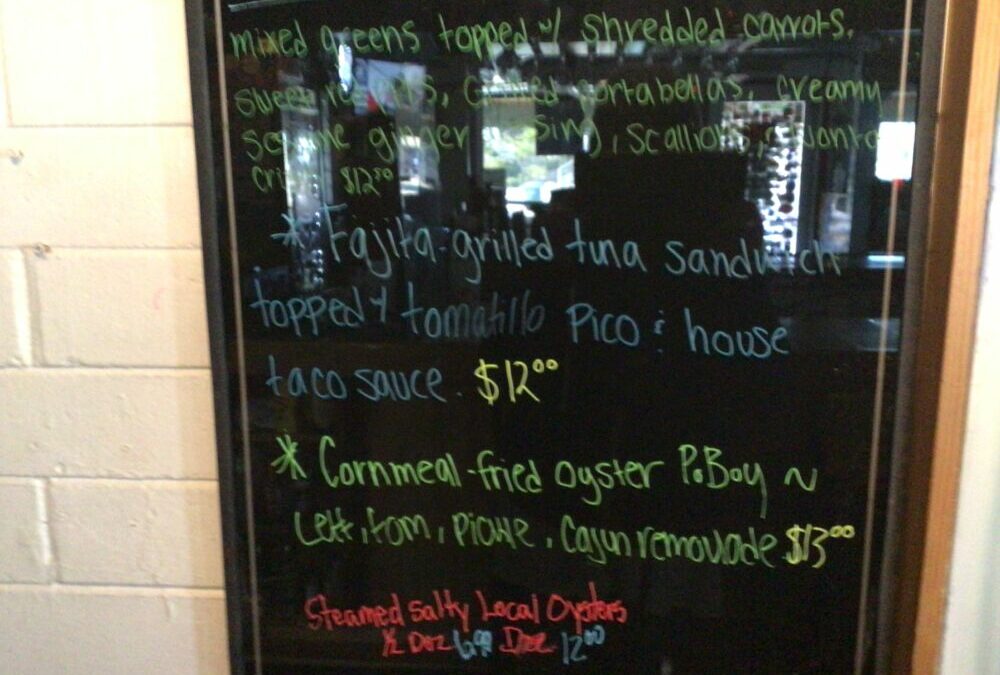 mixed greens topped w/ shredded carrots,
sweet, portabellas, creamy
ginger, scallions,
$12⁵⁰
* Fajita-grilled tuna sandwich
topped w/ tomatillo Pico & house
taco sauce. $12⁰⁰
* Cornmeal-fried oyster PoBoy ~
Lett, tom, pickle, Cajun remoulade $13⁰⁰
Steamed Salty Local Oysters
½ Doz Doz 12⁰⁰